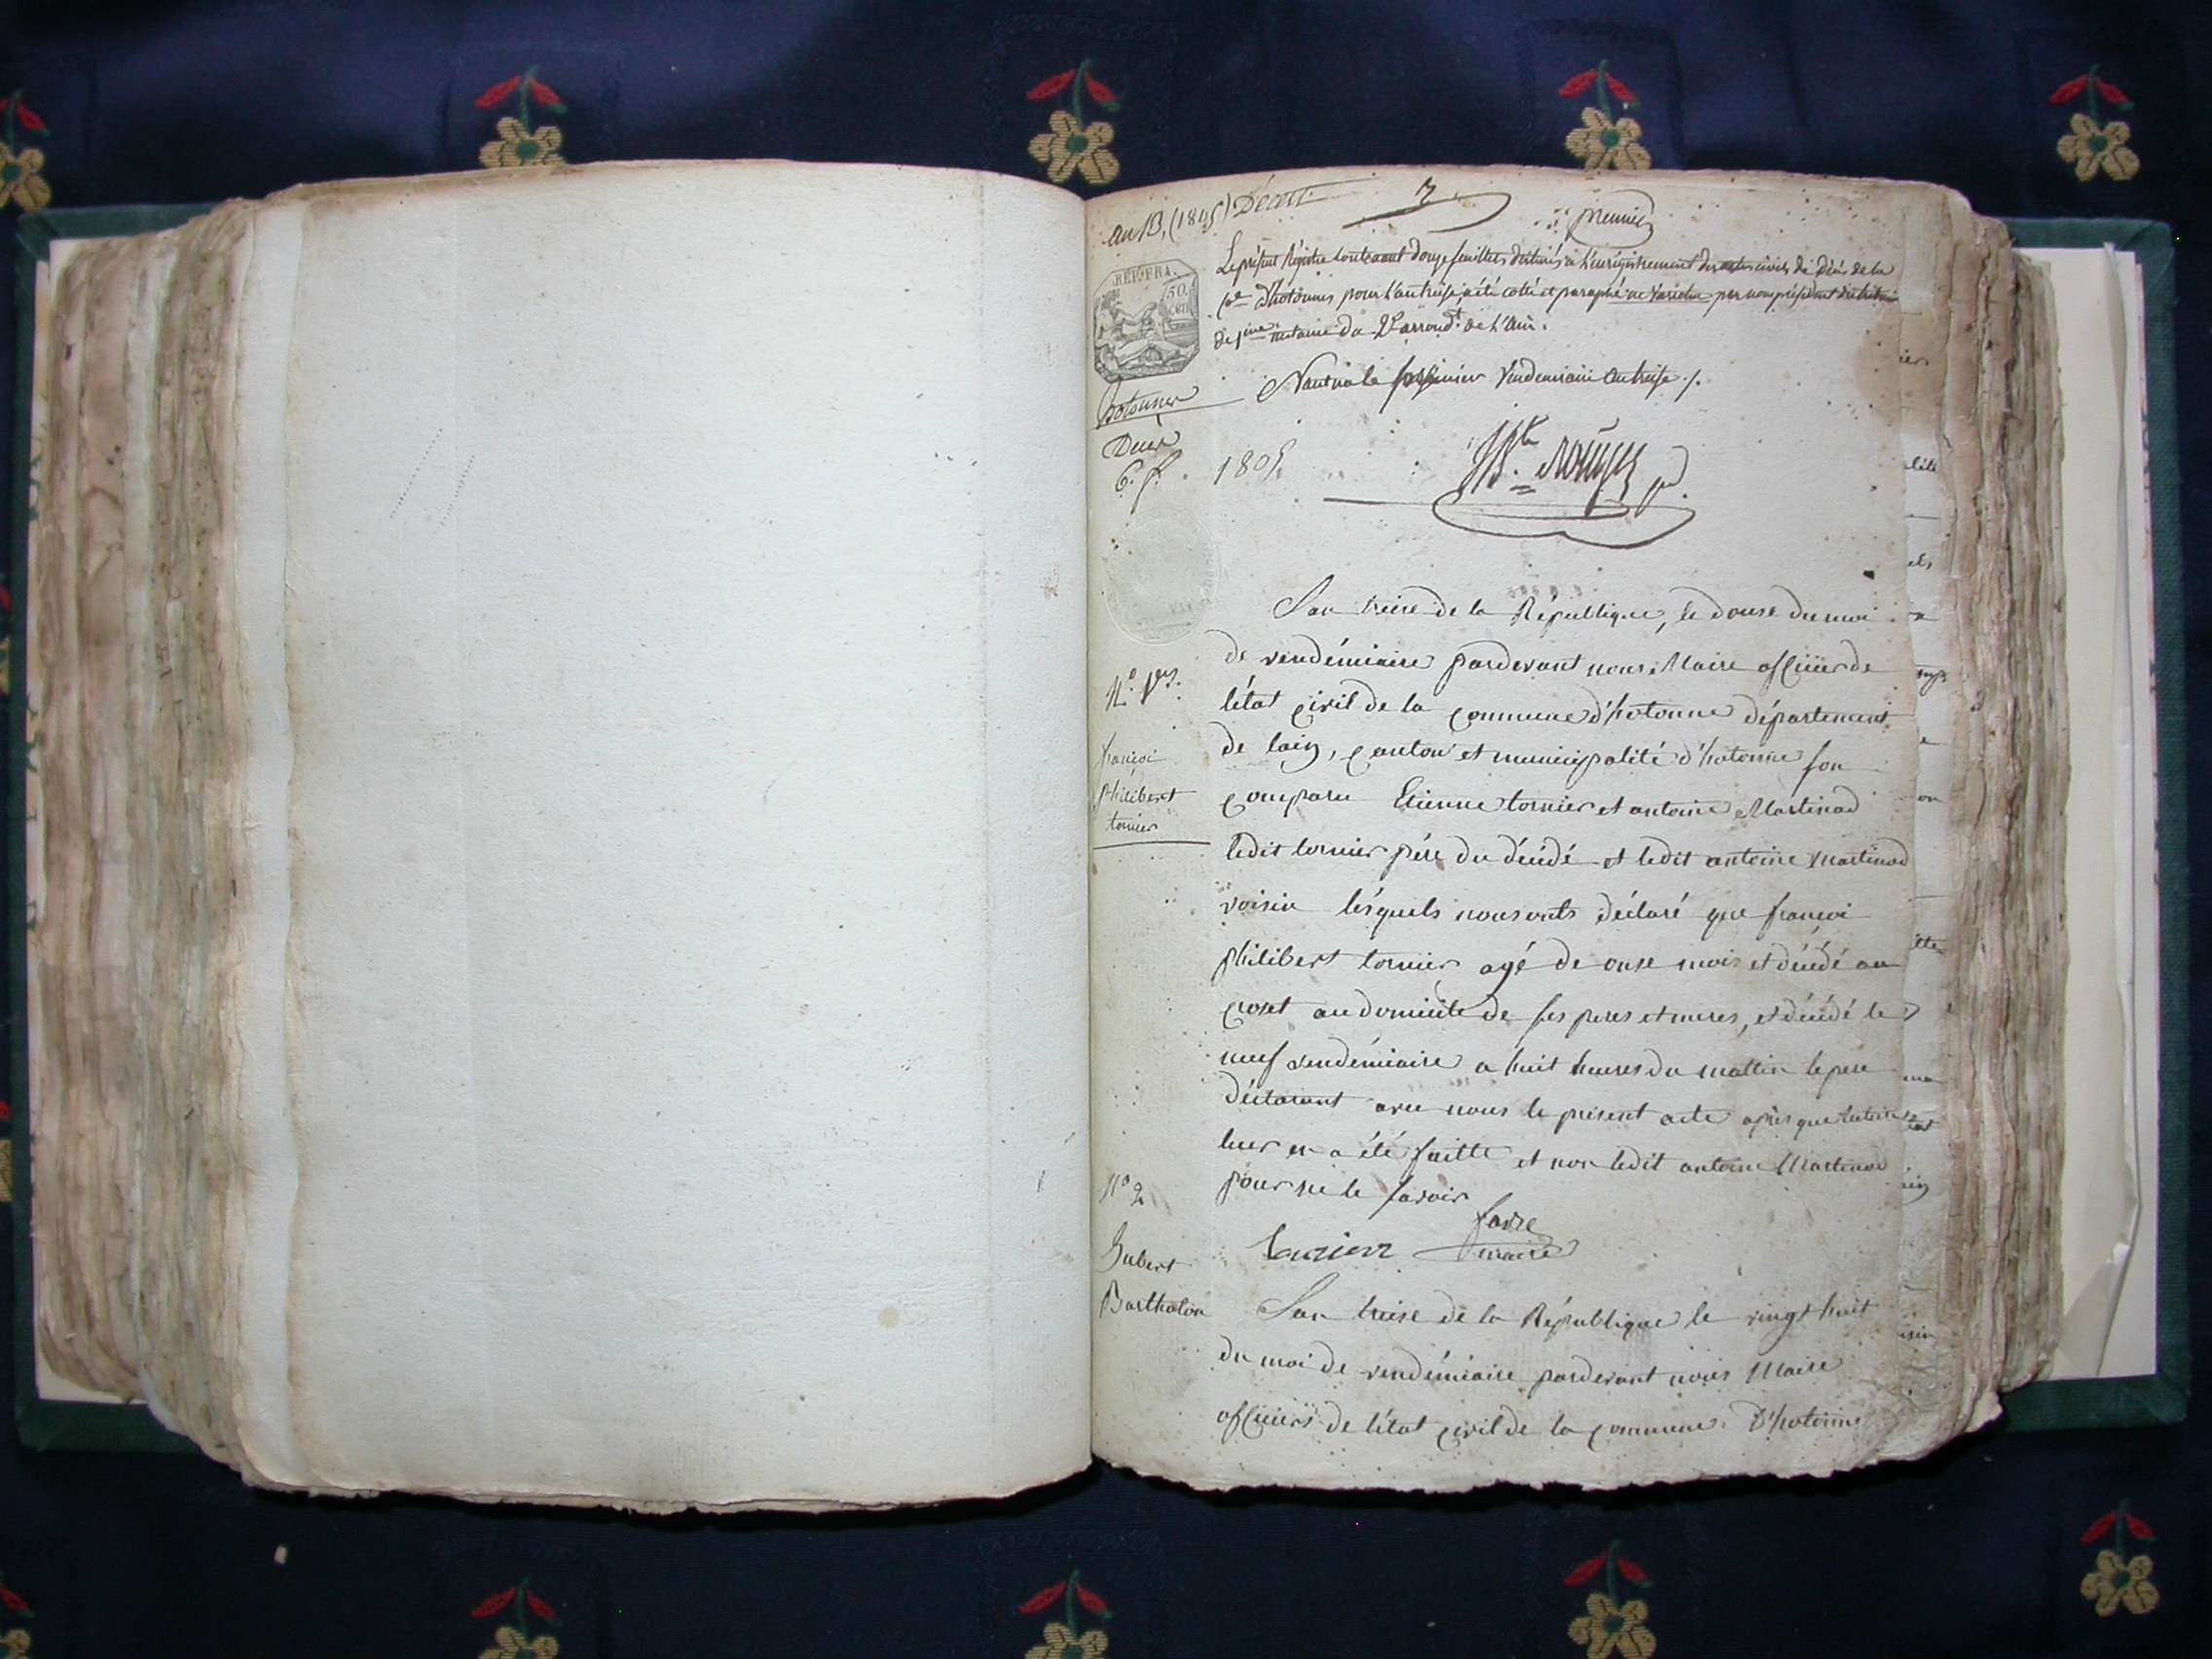 an 13, (1805) Décès
premier
REP. FRA.
50.
Cen
Le présent Régistre contenant douze feuillets destinés à l'enrégistrement des actes civils de décès de la
Cne d'hotonnes pour l'an treize, a été cotté et paraphé ne varietur par nous président du tribunal
de 1ère instance du 2e arrondt de l'Ain.
Nantua le premier Vendemiaire an treize ./.
hotonnes
Décès
6. f.
1805
N.o 1er.
françoi
philibert
tornier
Lan treise de la République, le douse du moi
de vendémiaire pardevant nous Maire officier de
létat civil de la commune d'hotonne département
de lain, canton et municipalité d'hotonne son
comparu Etienne tornier et antoine Martinod
ledit tornier pére du décédé et ledit antoine Martinod
voisin lésquels nous onts déclaré que françoi
philibert tornier agé de onse mois et décédé au
domicile de ses peres et meres, et décédé le
neuf vendémiaire a huit heures du mattin le pere
déclarant avec nous le présent acte aprés que lecture
leur en a été faitte et non ledit antoine Martinod
pour ne le savoir
tornier
favre
maire
N.o 2
hubert
Bartholon
Lan treise de la République le vingt huit
du moi de vendémiaire pardevant nous Maire
officiers de létat civil de la commune D'hotonne